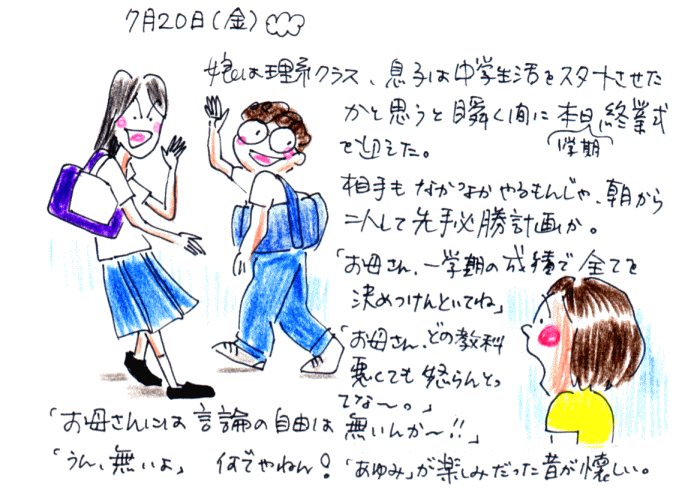 7月20日(金)
娘は理系クラス、息子は中学生活をスタートさせた
かと思うと瞬く間に本日終業式
学期
を迎えた。
相手もなかなかやるもんじゃ、朝から
二人して先手必勝計画か。
「お母さん、一学期の成績で全てを
決めつけんといてね」
「お母さん、どの教科
悪くても怒らんとっ
てな〜。」
「お母さんには言論の自由は無いんか〜!!」
「うん、無いよ」 何でやねん! 「あゆみ」が楽しみだった昔が懐しい。